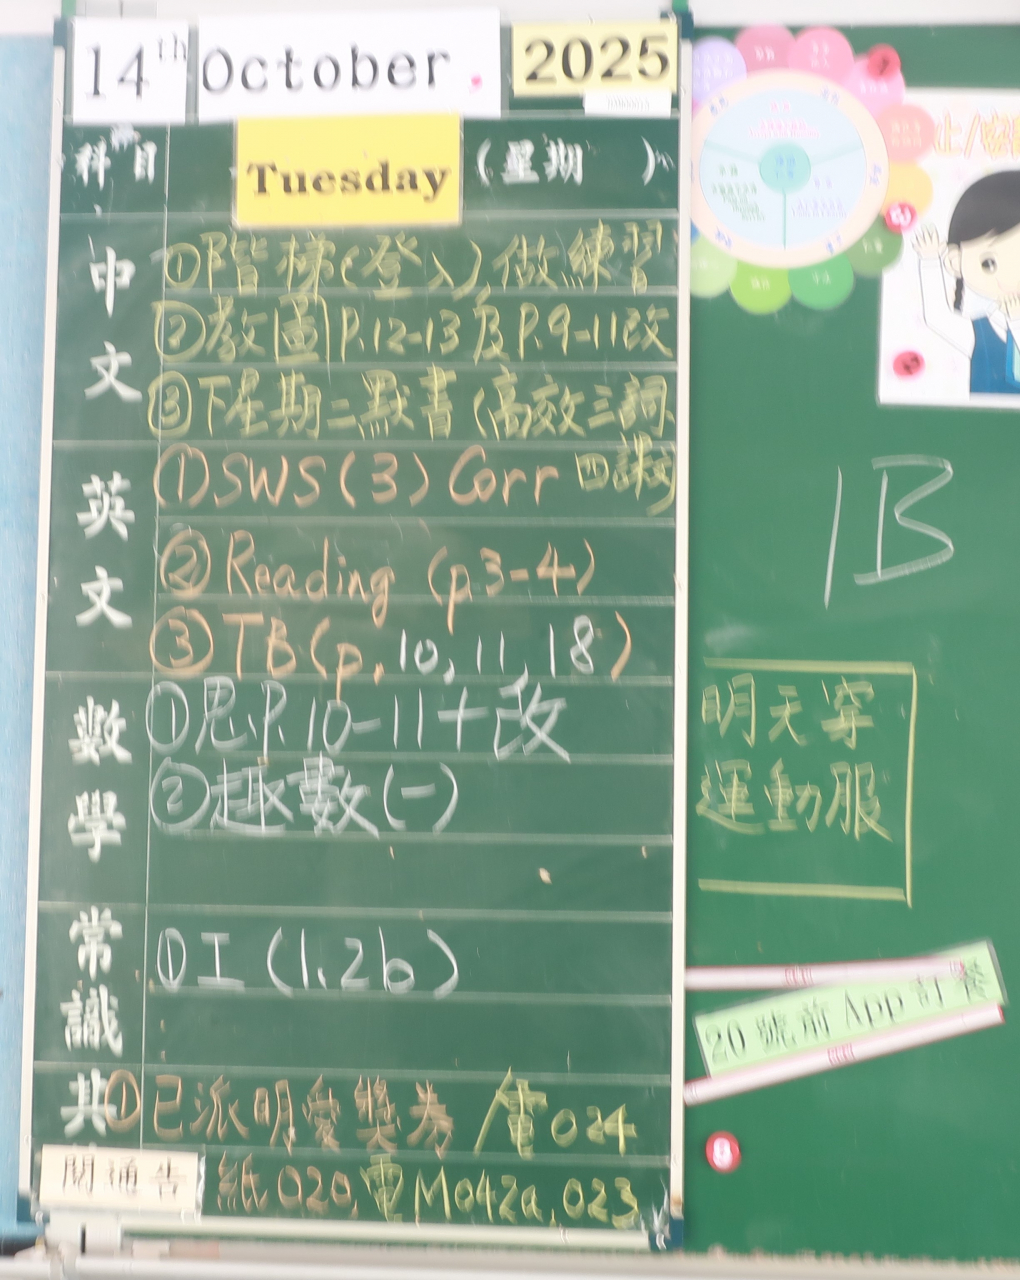 14th October. 2025
科目 Tuesday (星期 )
中文
①階梯(登入),做練習
②教圖P.12-13及P.9-11改
③下星期二默書(高效三詞
四課)
英文
①SWS(3) Corr
②Reading (p.3-4)
③TB(p.10,11,18)
數學
①思P.10-11+改
②趣數(一)
常識
①工(1.2b)
其
①已派明愛獎券/電024
閱通告 紙020,電M042a,023
1B
明天穿
運動服
20號前App訂餐